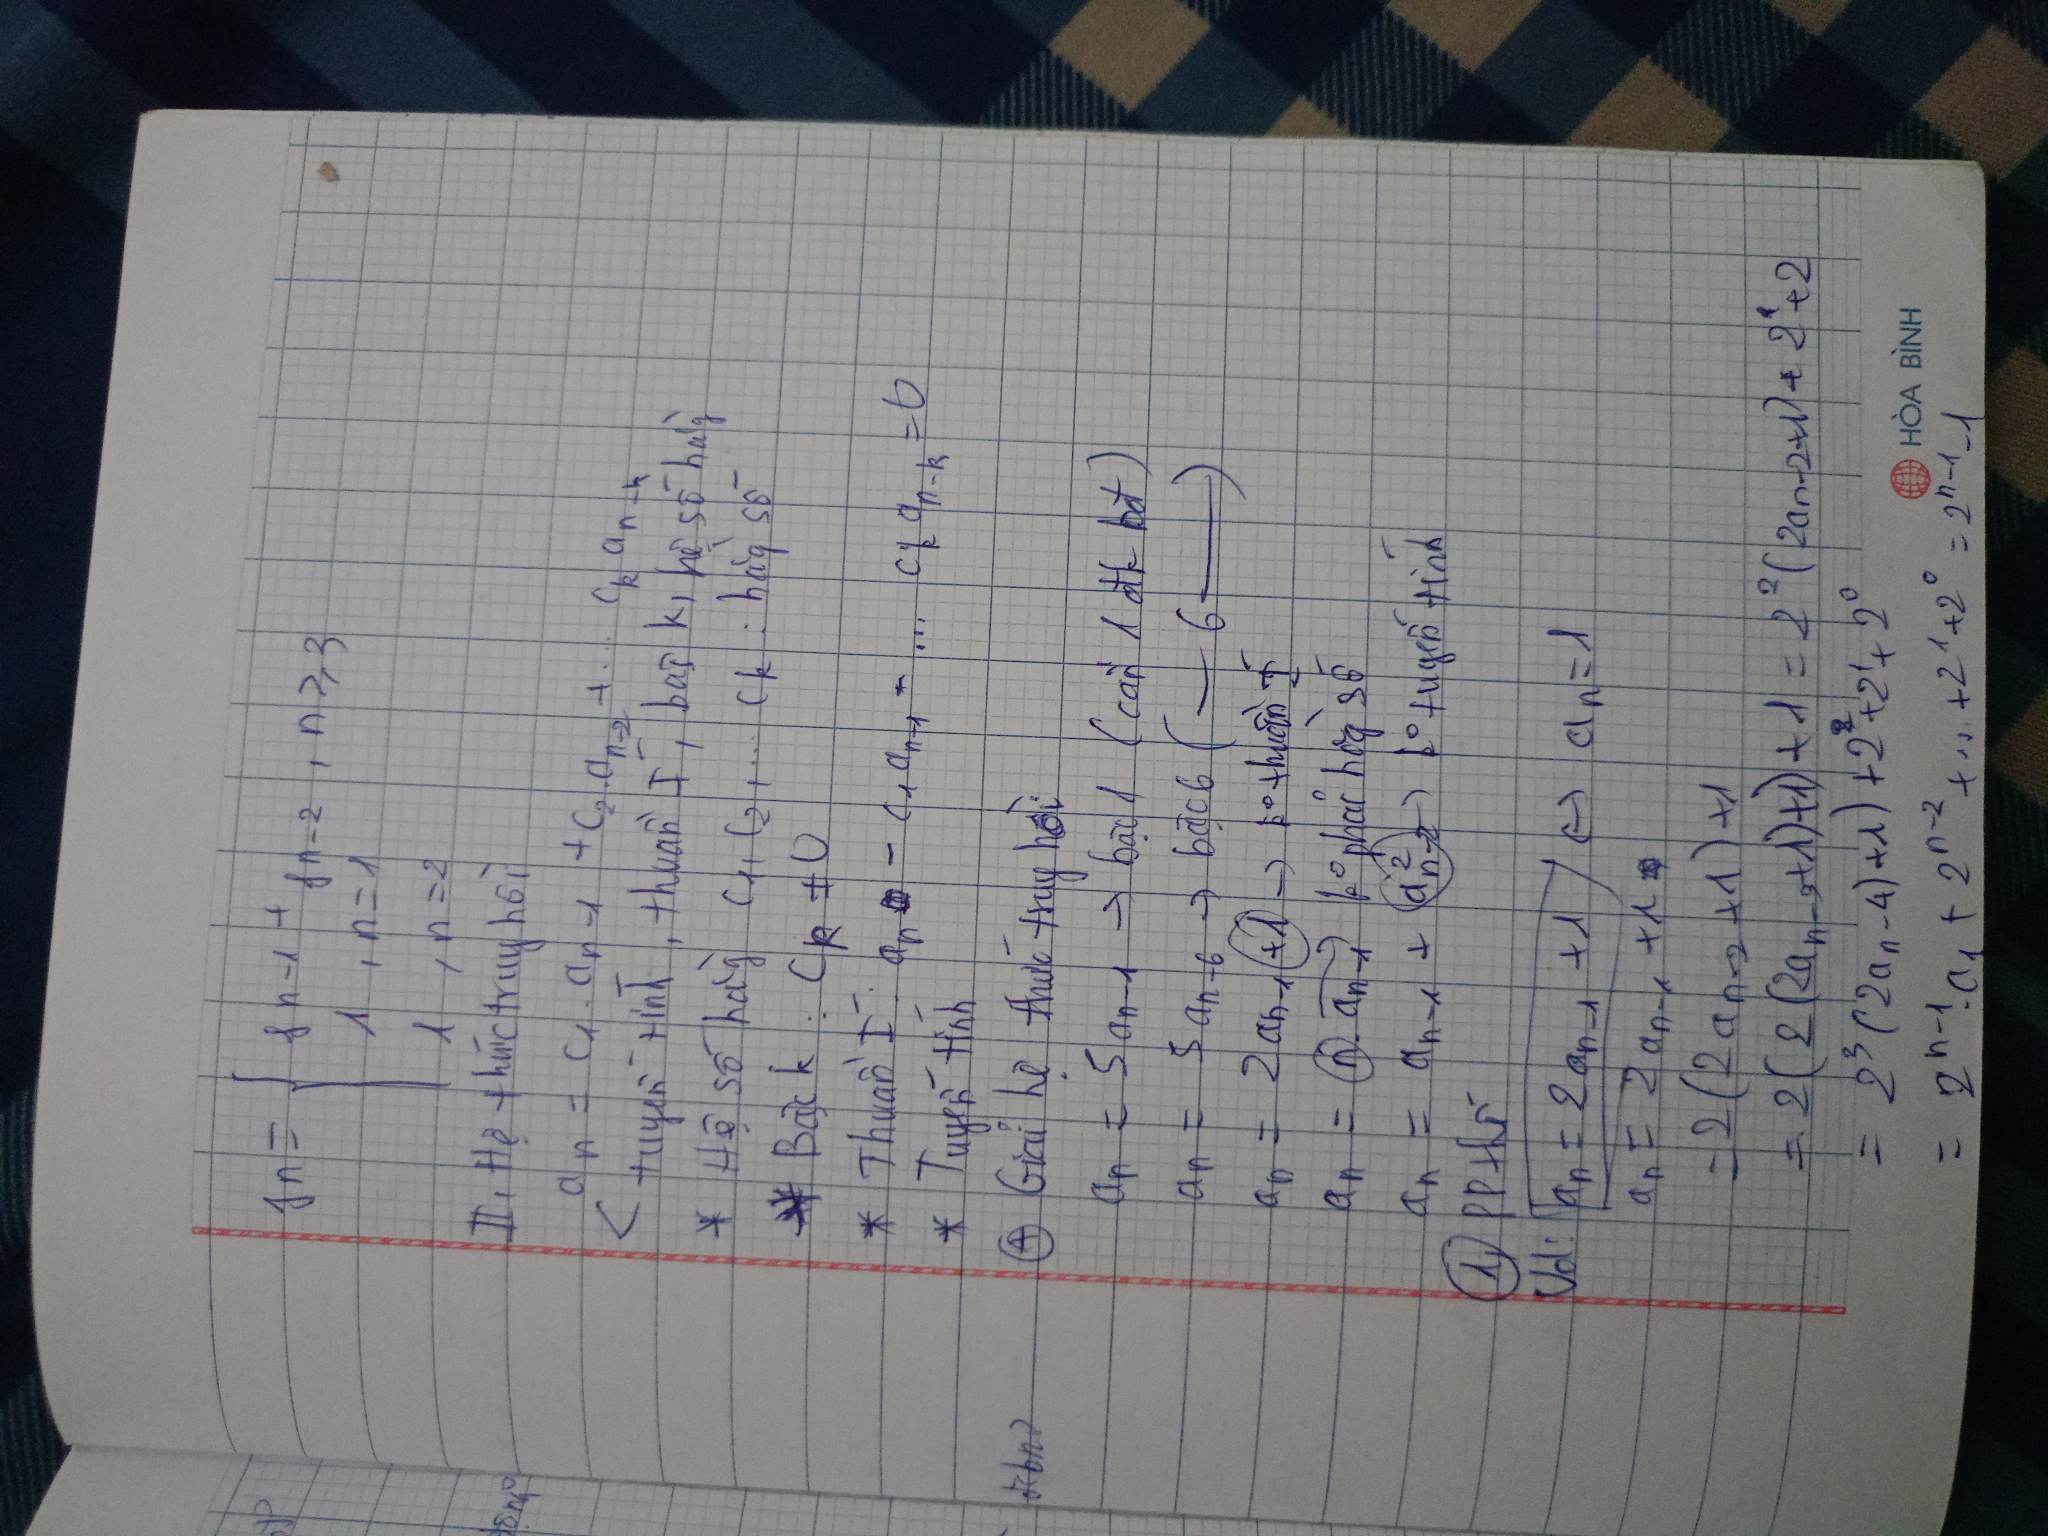 fn = { fn-1 + fn-2 , n ≥ 3
1 , n = 1
1 , n = 2
II, Hệ thức truy hồi
an = c1 . an-1 + c2 . an-2 + ... ck an-k
< tuyến tính, thuần I, bậc k, hệ số hằg
* Hệ số hằg c1, c2, ... ck : hằg số
* Bậc k : Ck ≠ 0
* Thuần I : an - c1 an-1 - ... ck an-k = 0
* Tuyến tính
⊕ Giải hệ thức truy hồi
an = 5 an-1 → bậc 1 (cần 1 đk bđ)
an = 5 an-6 → bậc 6 ( — 6 — )
an = 2an-1 +1 → ko thuần I
an = n. an-1 ko phải hằg số
an = an-1 + a²n-2 → ko tuyến tính
1, PP thế
Vd: an = 2an-1 + 1 ↔ an = 1
an = 2an-1 + 1
= 2(2an-2 + 1) + 1
= 2(2(2an-3+1)+1)+1 = 2²(2an-2+1) + 2¹+2
= 2³(2an-4)+1) + 2²+2¹+2⁰
HÒA BÌNH
= 2ⁿ⁻¹.a1 + 2ⁿ⁻² + ... + 2¹+2⁰ = 2ⁿ⁻¹-1